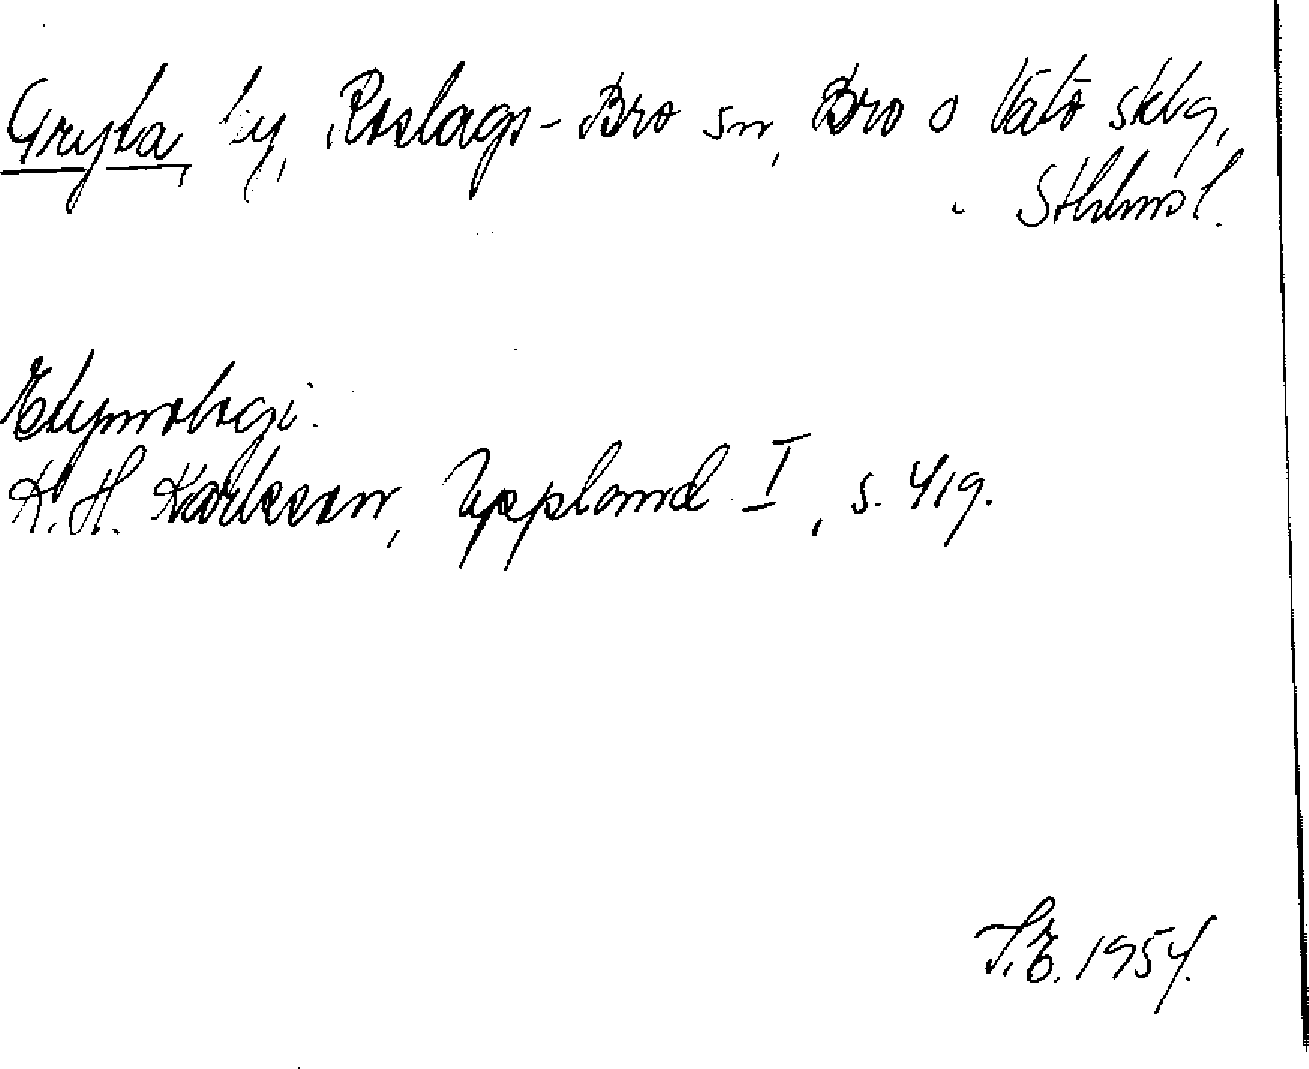 Gryta, by, Roslags-Bro sn, Bro o Vätö sklg,
Sthlms l.
Etymologi:
K. H. Karlsson, Uppland I, s. 419.
1954.